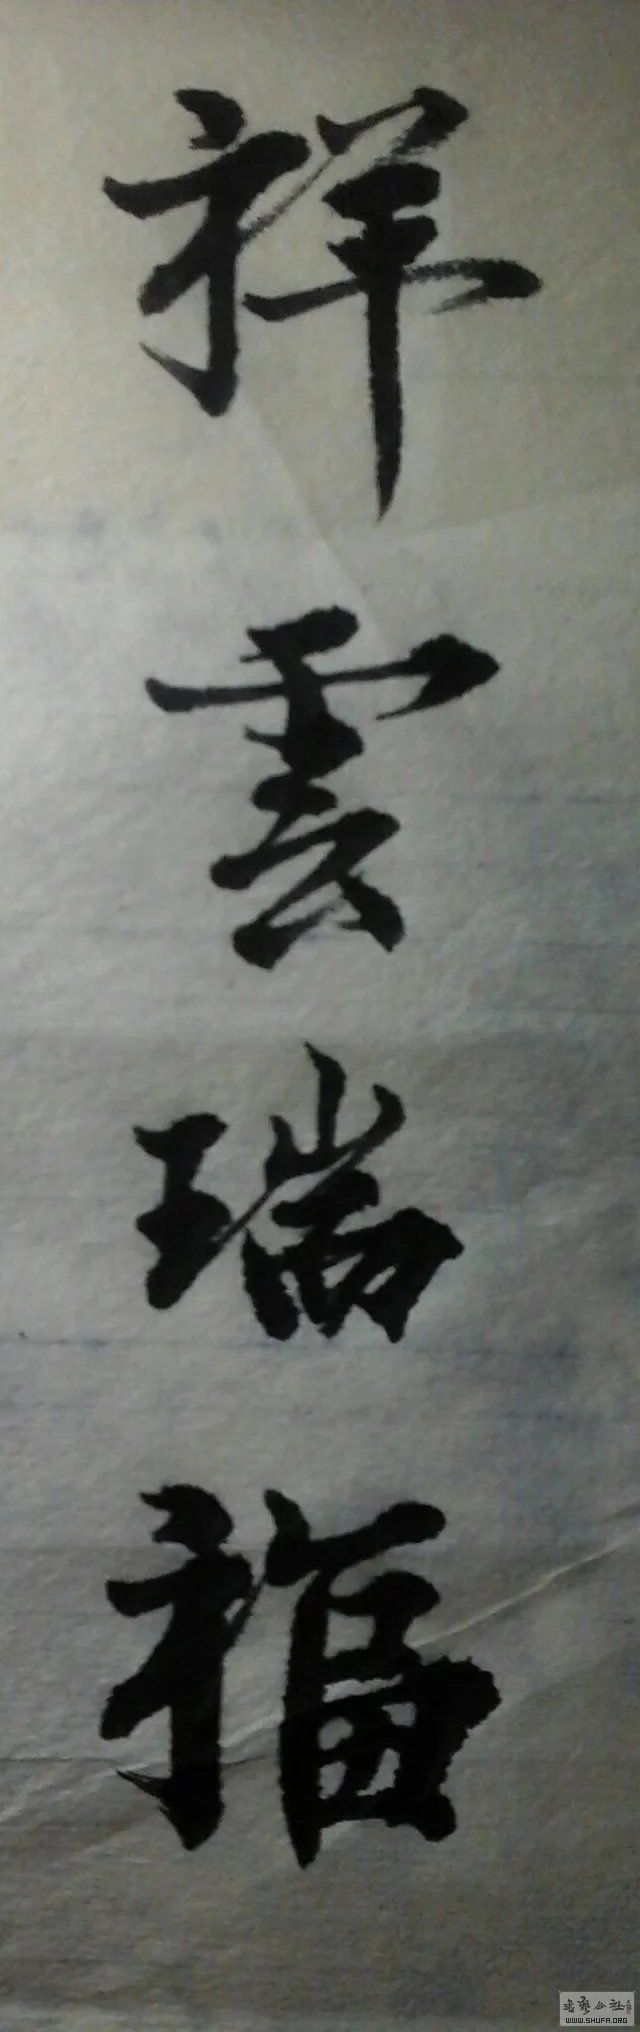 祥雲瑞福
书艺公社
WWW.SHUFA.ORG